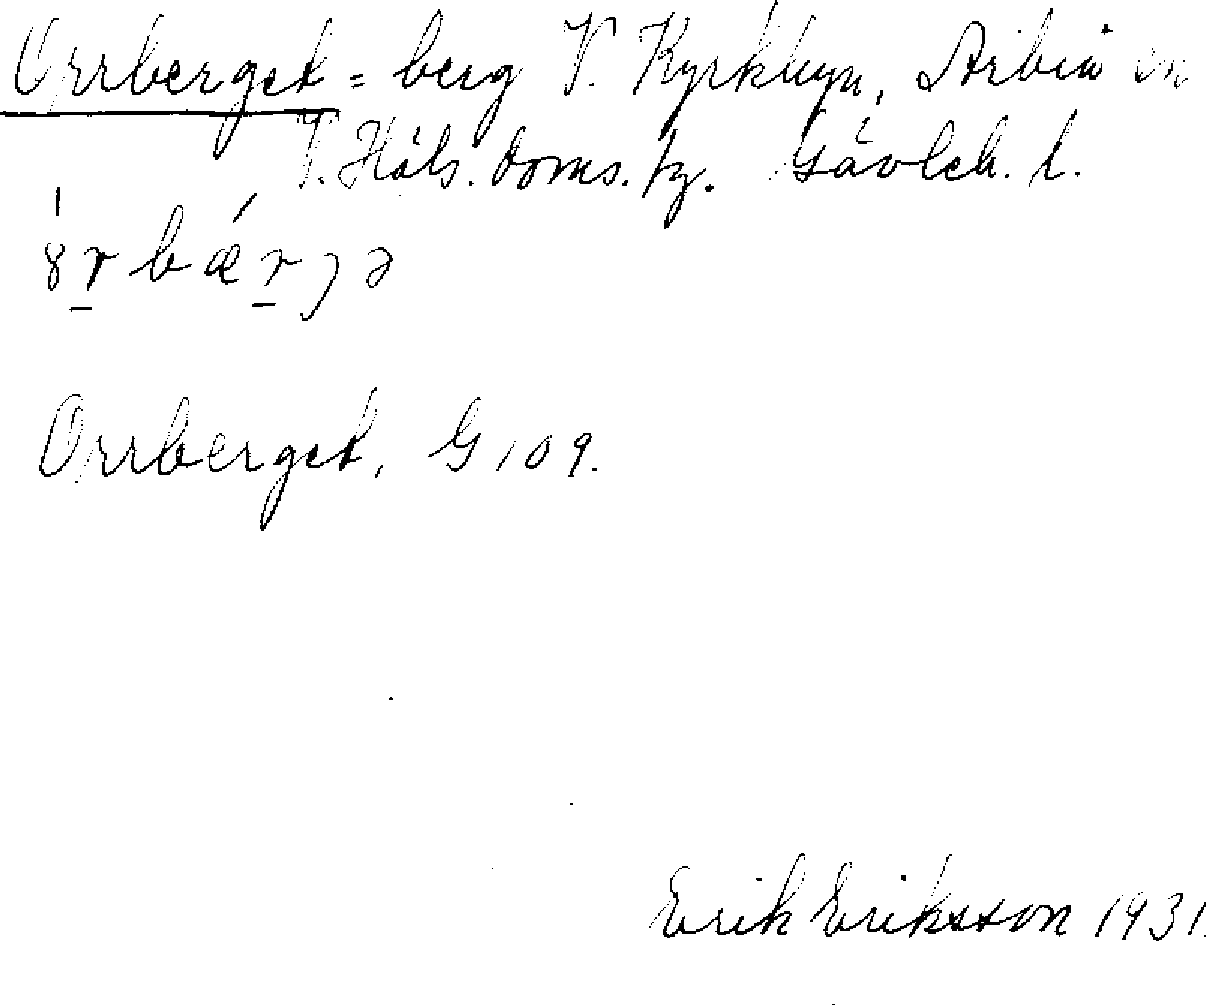 Orrberget = berg V. Kyrkbyn, Arbrå sn
V. Häls. doms. hg. Gävleb. l.
ȣ́r̲bǽr̲jə
Orrberget, G 109.
Erik Eriksson 1931.